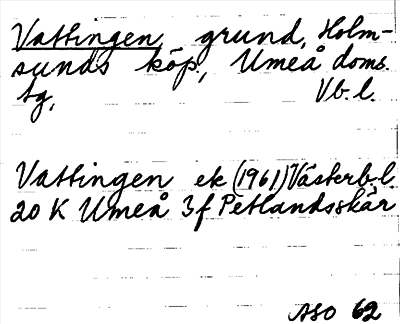 Vattingen grund, Holm-
sunds köp., Umeå doms.
tg, Vb. l.
Vattingen ek (1961) Västerb. l.
20 K Umeå 3 f Petlandsskär
ASO 62